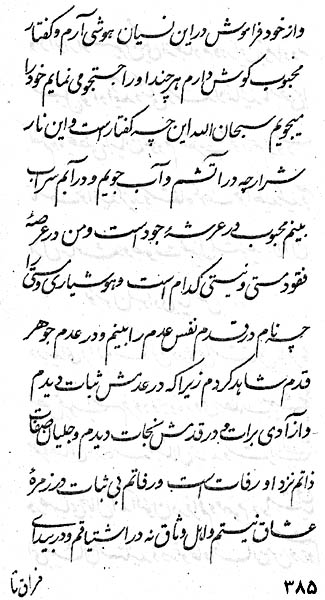 و از خود فراموش در این نسیان هوشی آرم و گفتار
محبوب گوش دارم هر چند او را جستجو می نمایم خود را
میجویم سبحان الله این چه گفتار است و این نار
شرار چه در آتشم و آب جویم و در آبم سراب
بینم محبوب در عرشهٔ وجود است و من در عرصهٔ
فقود مستی و نیستی کدام است و هوشیاری و مستی را
چه نام در قدم نفس عدم را بینم و در عدم جوهر
قدم مشاهد کردم زیرا که در عدمش ثبات دیدم
و از آدی برات و در قدمش نجات دیدم و جلیان صفات
ذاتم نزد او رفات است و رفاتم بی ثبات در زمرهٔ
عشاق نیستم و لایل وثاق نه در اشتیاقم و در بیدای
۳۸۵
فراق تا